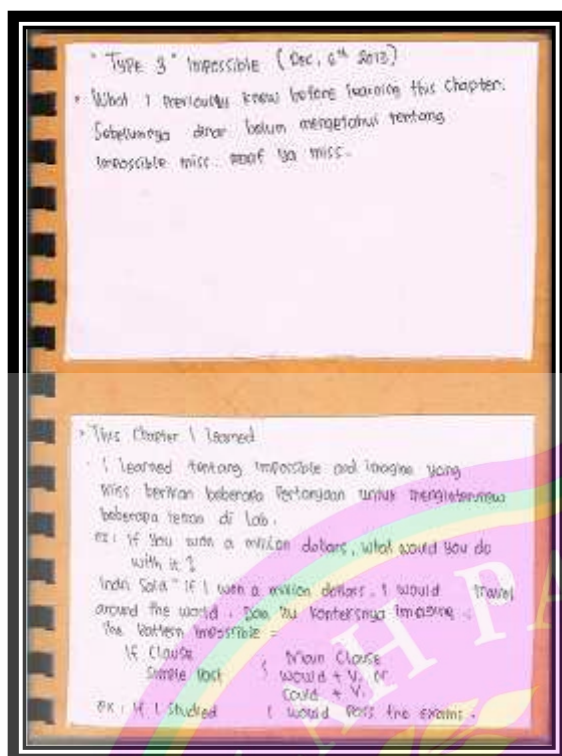 " Type 3 " Impossible ( Dec, 6th 2013 )
* What I previously knew before learning this Chapter.
Sebelumnya dinar belum mengetahui tentang
Impossible miss. maaf ya miss.
* This Chapter I learned
I learned tentang impossible and imagine yang
miss berikan beberapa Pertanyaan untuk menginterview
beberapa teman di Lab.
ex : If you won a million dollars, what would you do
with it ?
Indri Said " If I won a million dollars. I would travel
around the world. Dan itu konteksnya Imagine.
The Pattern Impossible =
If Clause Main Clause
Simple Past would + V1 or
Could + V1
ex : If I Studied I would Pass the exams.
H PA